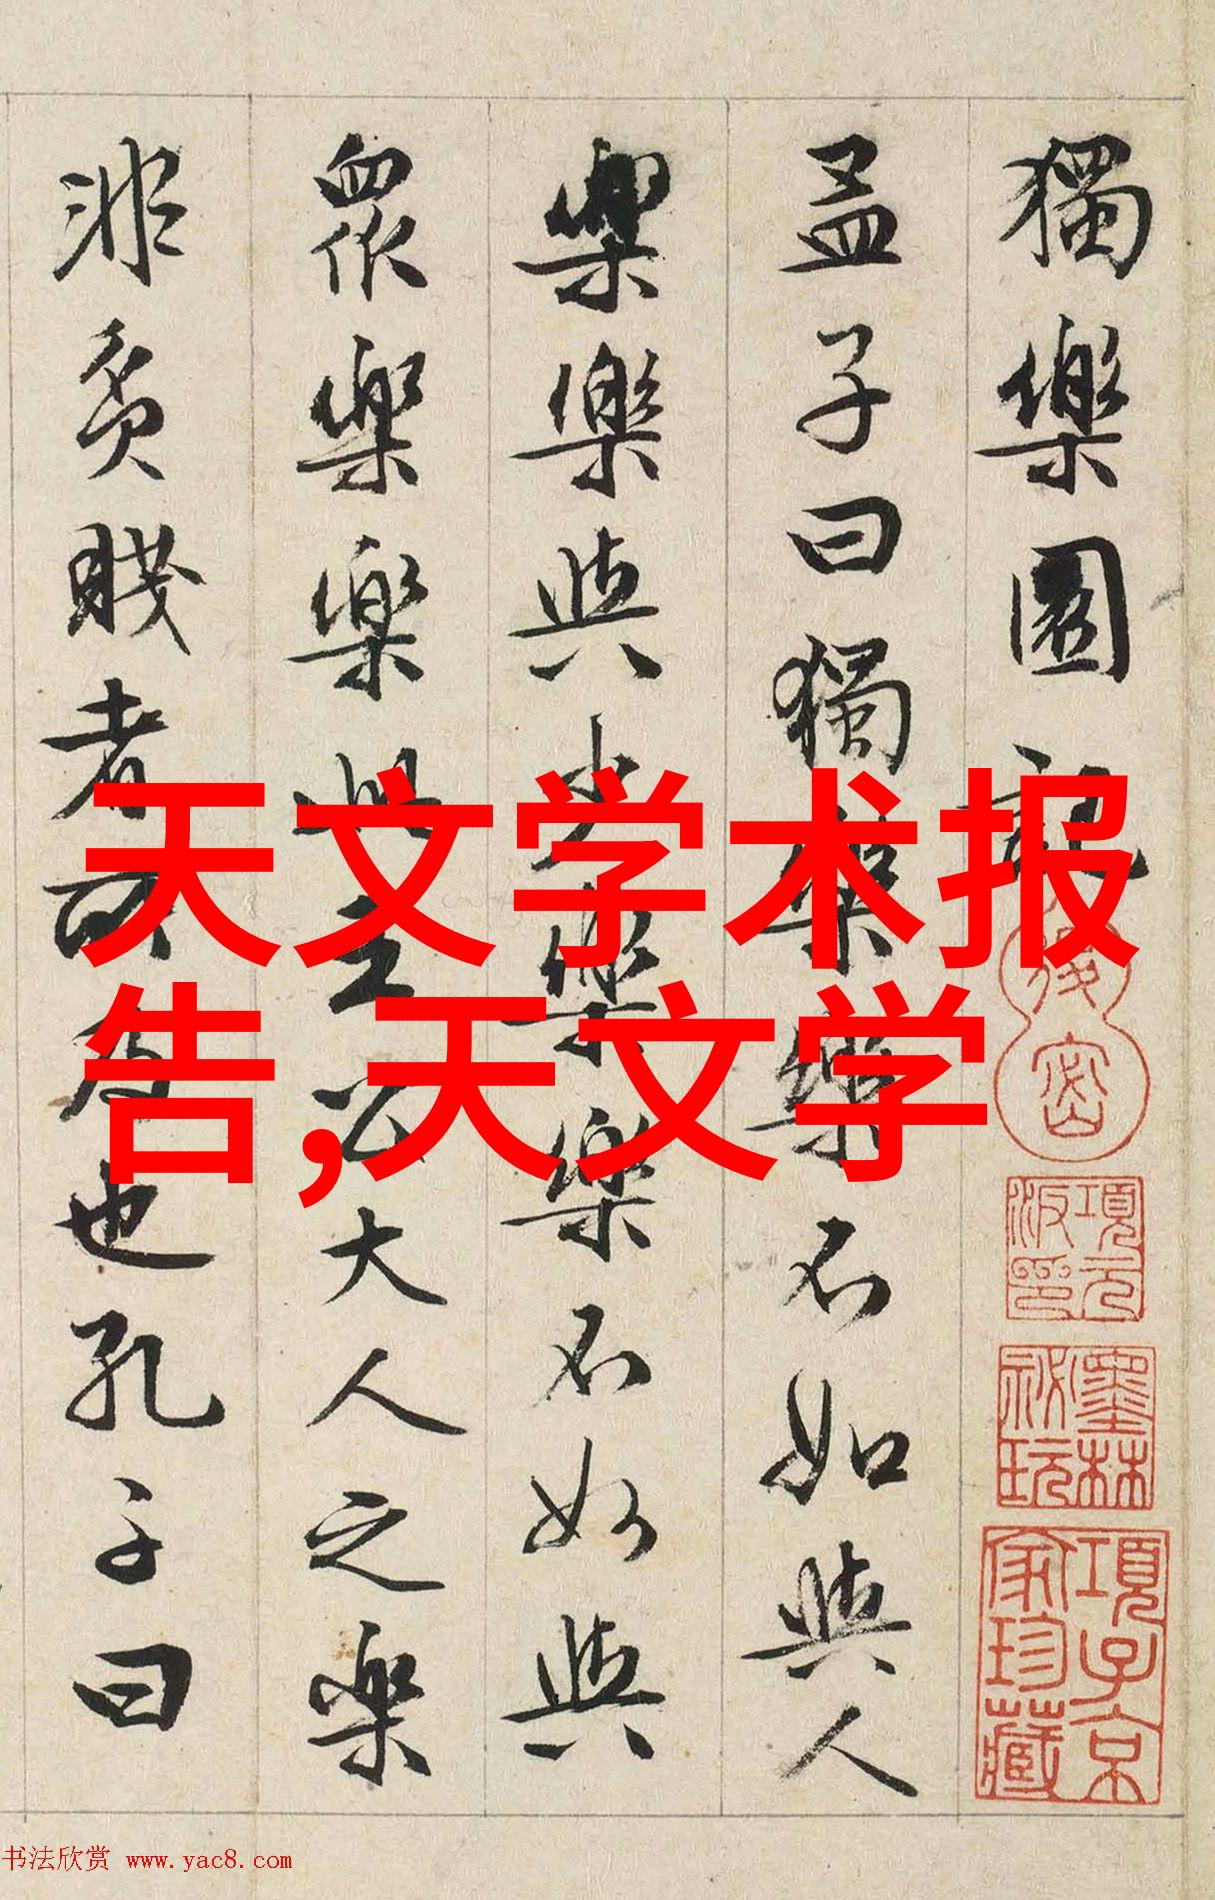 獨樂園記
孟子曰獨樂樂不如與人
樂樂與少樂樂不如與
衆樂樂此王公大人之樂
非貧賤者所及也孔子曰
天文学术报
告,天文学
項元汴印
墨林祕玩
項子京家珍藏
书法欣赏 www.yac8.com